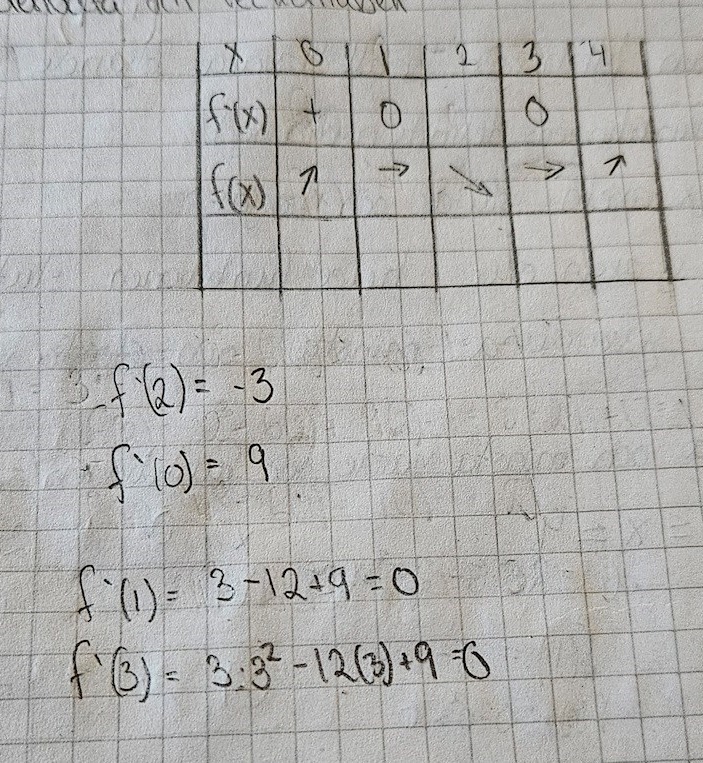 x 0 1 2 3 4
f'(x) + 0 0
f(x) ↗ → ↘ → ↗
f'(2) = -3
f'(0) = 9
f'(1) = 3-12+9=0
f'(3) = 3·3²-12(3)+9=0